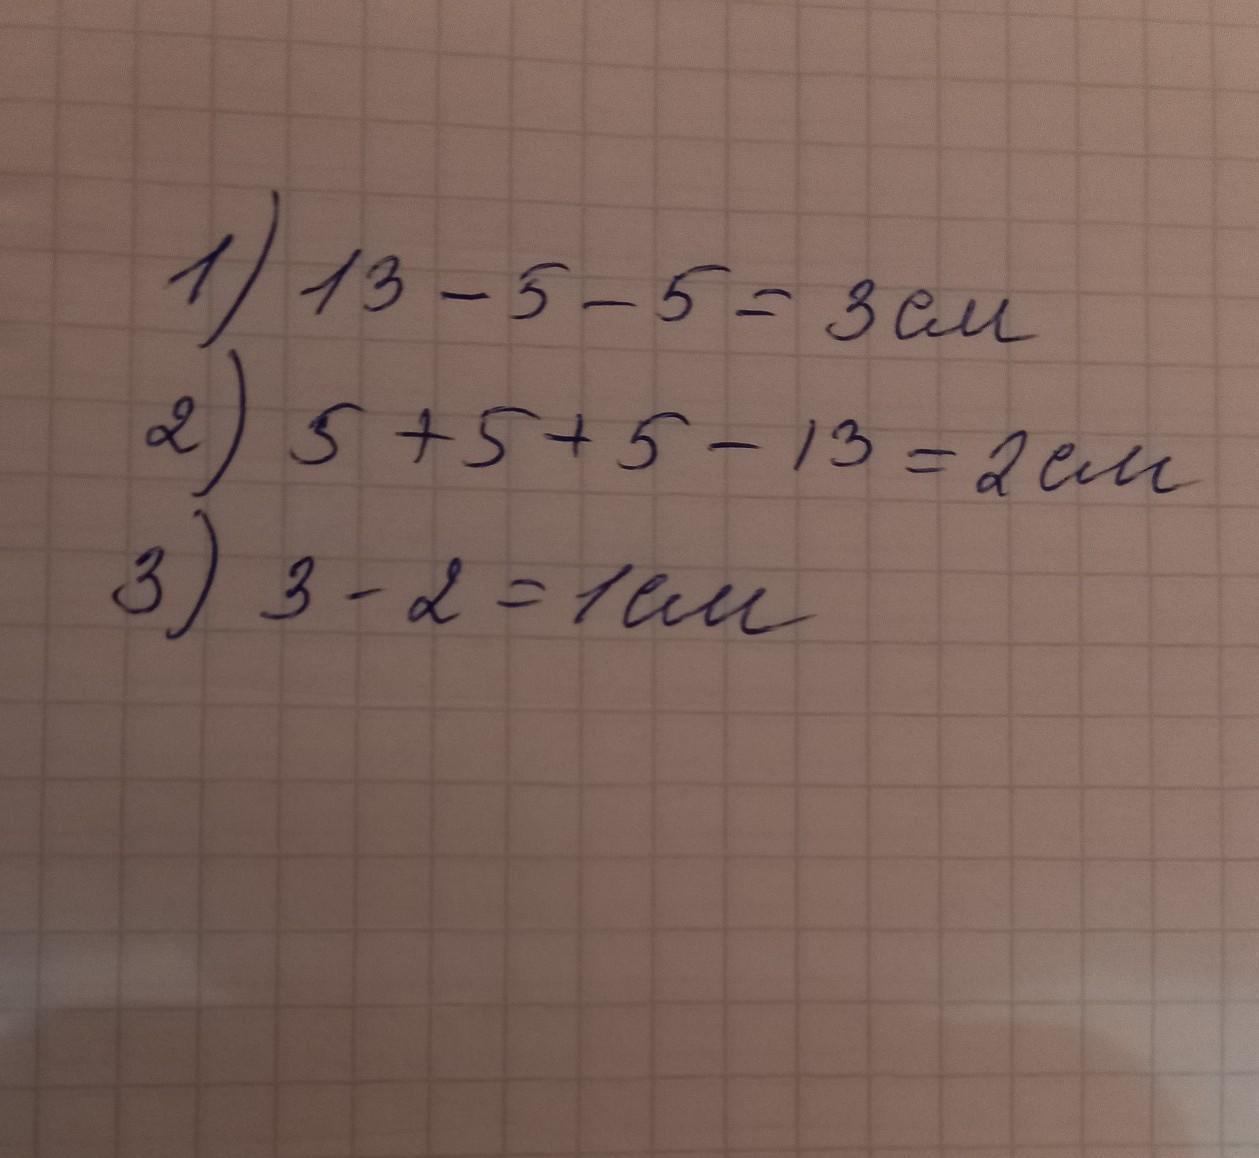 1) 13 - 5 - 5 = 3 см
2) 5 + 5 + 5 - 13 = 2 см
3) 3 - 2 = 1 см